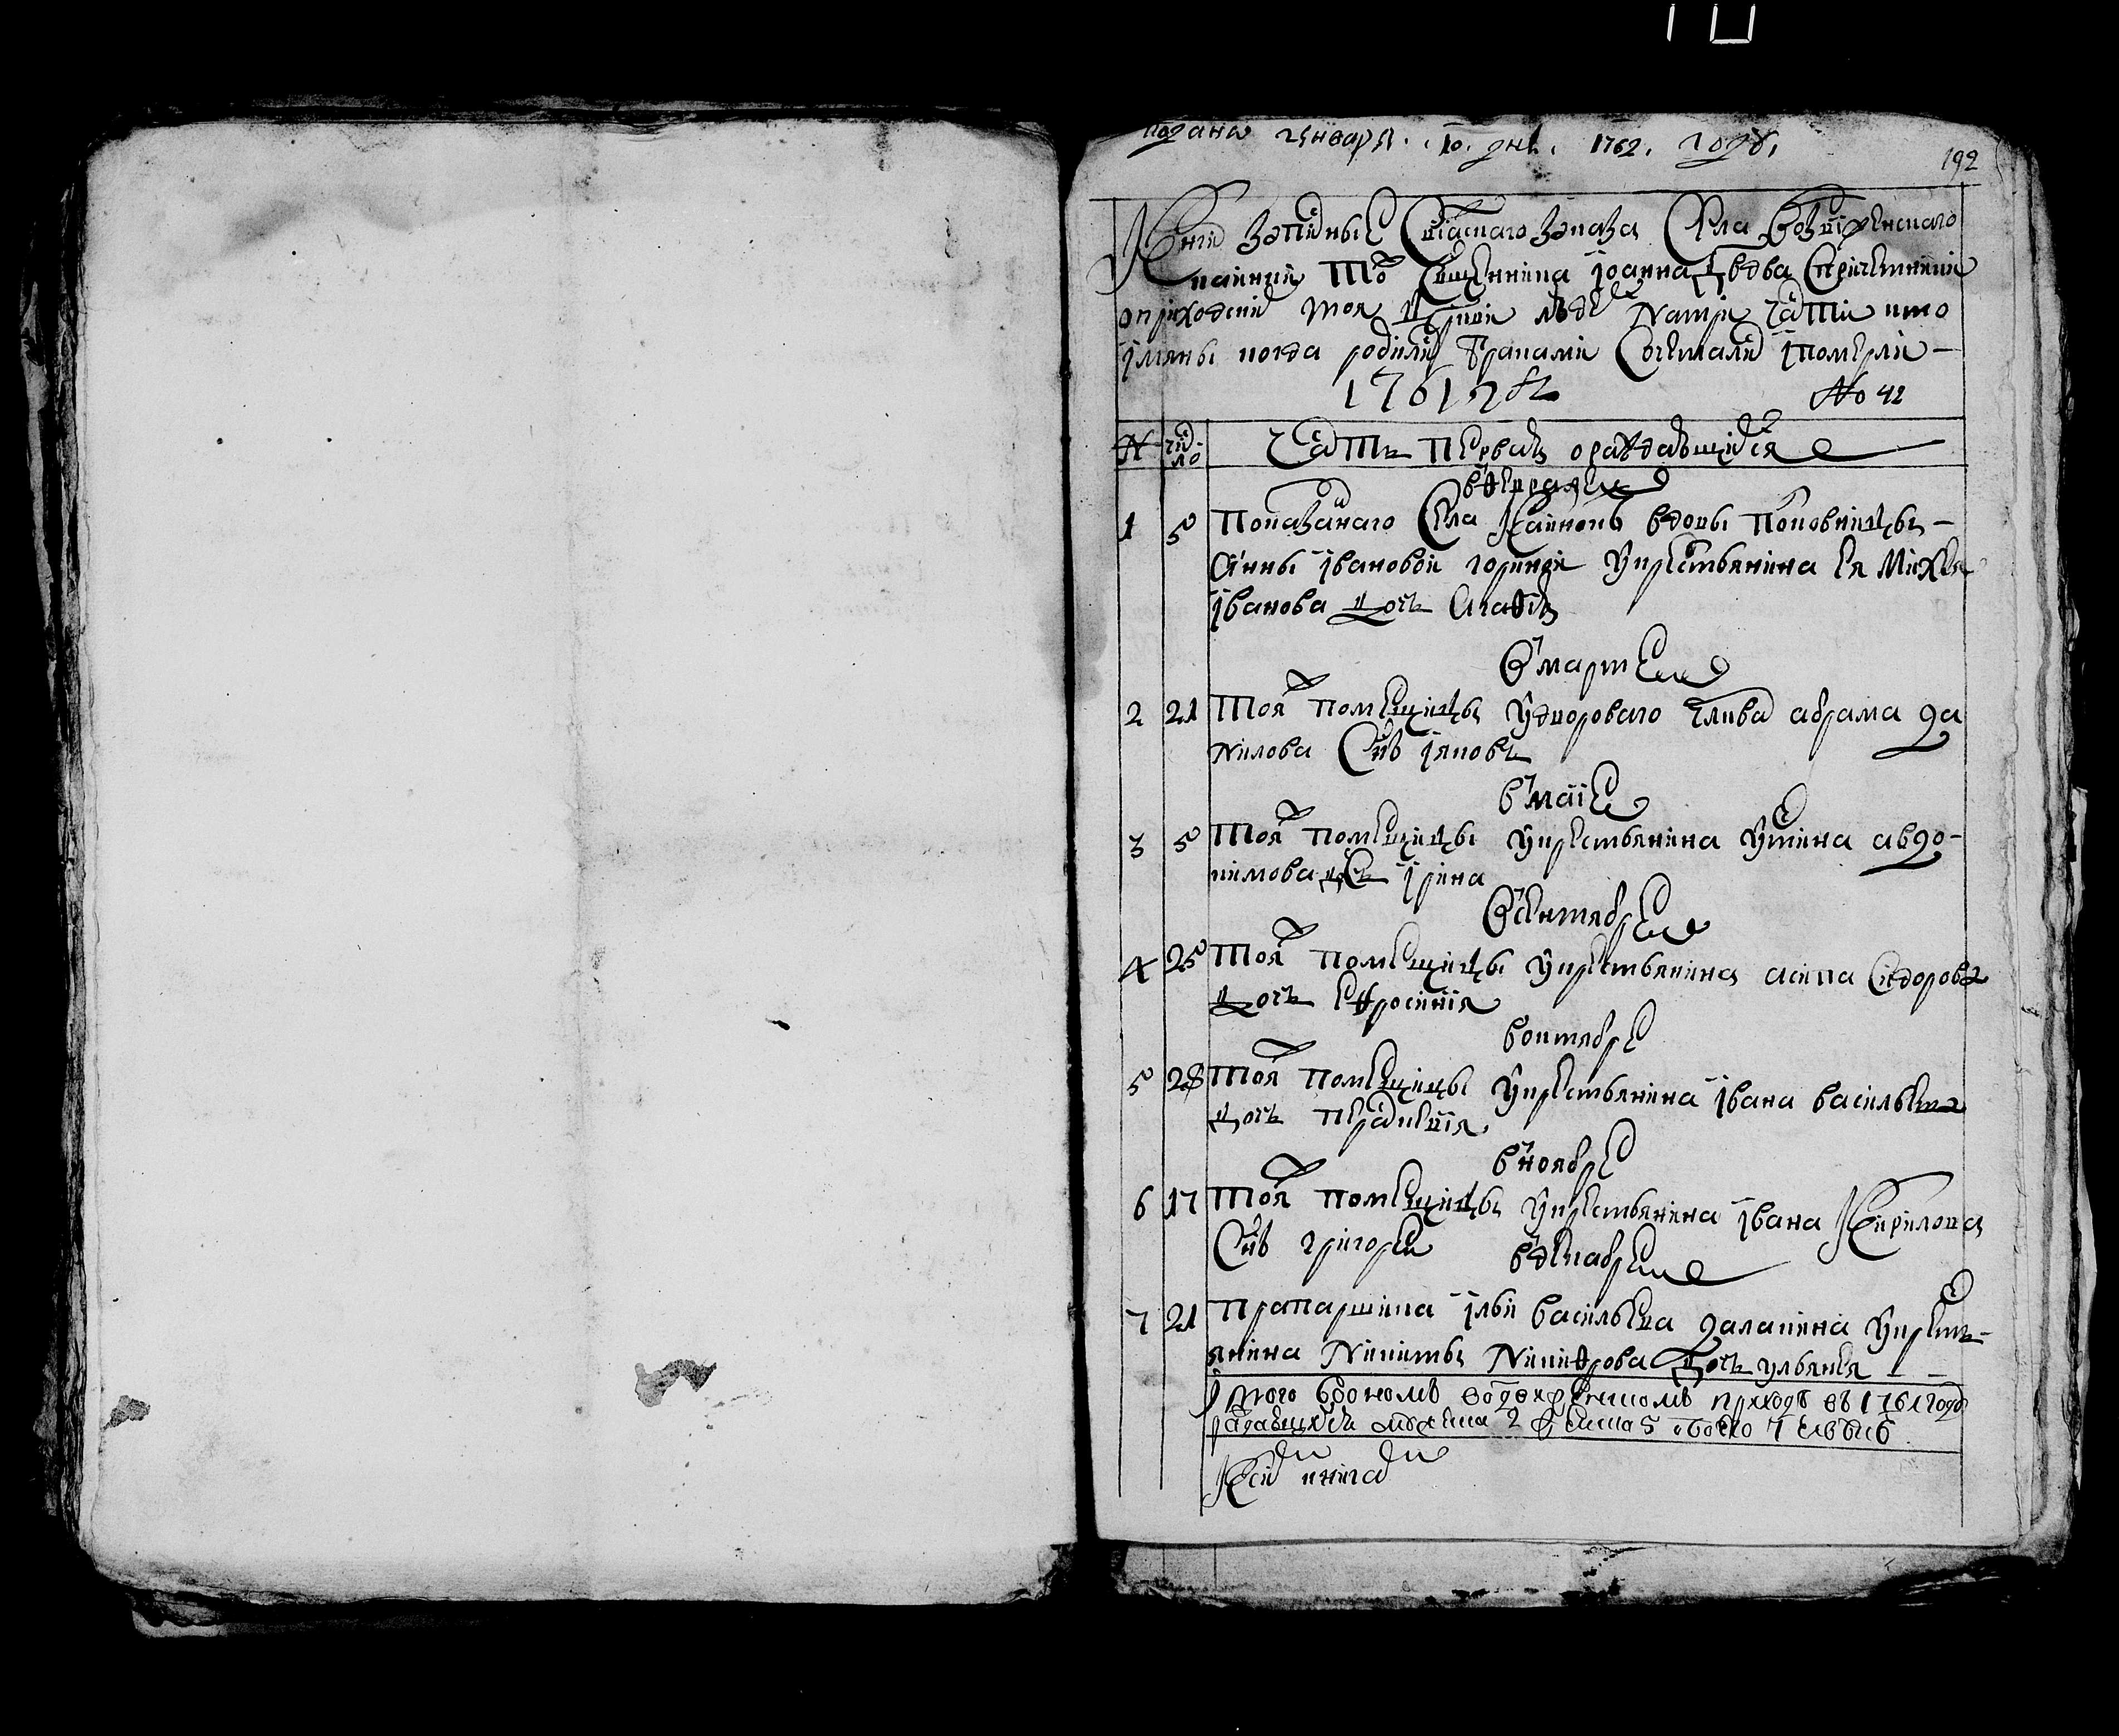 подана генваря 10 дня 1762 году
192
Книги записные Спаского заказа Села Воздвиженскаго
той Священника Іоанна с причетники
о приходских тоя церкви людех на три части кто
имяны когда родились браками сочетались и померли
1761 году № 42
№ число Часть первая о раждающихся
в феврале
1 5 Показанаго Села вдовы
Анны Івановой у крестьянина ея Михея
Іванова дочь Агафія
в марте
2 21 Тоя ж помещицы у двороваго человека абрама да
нилова сын іяковъ
в маие
3 5 Тоя ж помещицы у крестьянина устина авдо
кимова дочь ірина
в сентябре
4 25 Тоя ж помещицы у крестьянина асипа Сидорова
дочь ефросиния
в октябре
5 28 Тоя ж помещицы у крестьянина івана васильева
дочь
в ноябре
6 17 Тоя ж помещицы у крестьянина івана Кирилова
сын григореи
в декабре
7 21 Прапорщика ільи васильева у кресть
янина Никиты Никифорова дочь ульяния
Итого в оном воздвиженском приходе в 1761 году
раждающихся мужеска 2 женска 5 обоего 7 человек
книга